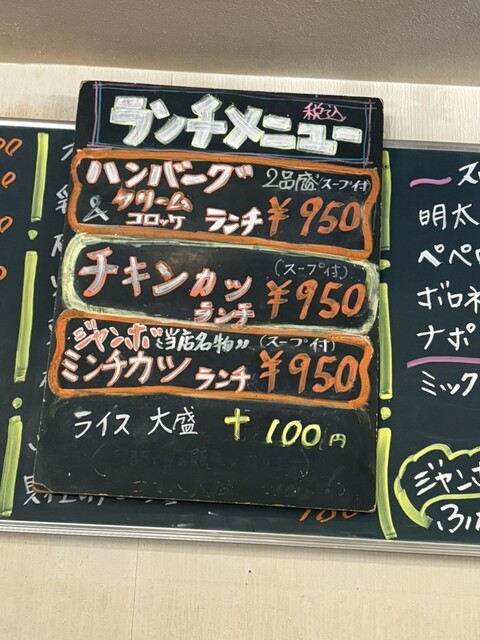 ランチメニュー 税込
ハンバーグ 2品盛(スープ付)
& クリームコロッケ ランチ ¥950
チキンカツ (スープ付)
ランチ ¥950
ジャンボ "当店名物" (スープ付)
ミンチカツ ランチ ¥950
ライス 大盛 + 100円
明太
ペペロ
ボロネ
ナポ
ミック
ジャン
ふわ